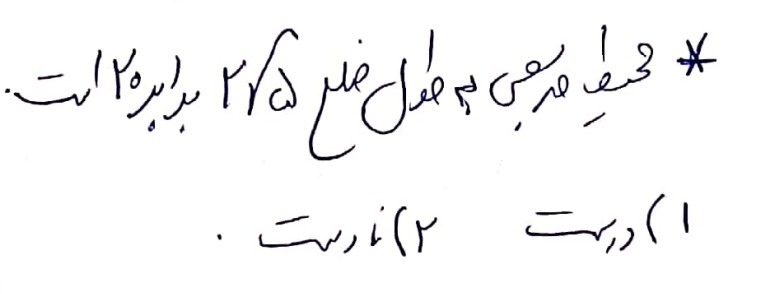 * محیط مربعی به طول ضلع ۲√۵ برابر ۲۰ است.
۱) درست ۲) نادرست.